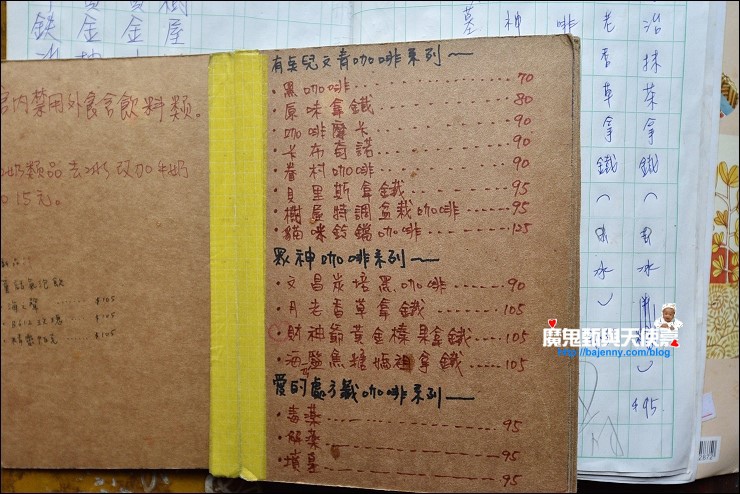 有点兒文青咖啡系列～
·黑咖啡 70
·原味拿鐵 80
·咖啡摩卡 90
·卡布奇諾 90
·眷村咖啡 90
·貝里斯拿鐵 95
·樹屋特調盆栽咖啡 95
·貓咪鈴鐺咖啡 125
眾神咖啡系列～
·文昌炭培黑咖啡 90
·月老香草拿鐵 105
·財神爺黃金榛果拿鐵 105
·海鹽焦糖媽祖拿鐵 105
愛的處方籤咖啡系列～
·毒藥 95
·解藥 95
·墳墓 95
內禁用外食含飲料類。
奶類品去冰改加牛奶
15元。
$105
$105
$105
抹茶拿鐵
冰
$95.
老香草拿鐵
冰
神
啡
金屋
金
魔鬼甄與天使嘉
http://bajenny.com/blog